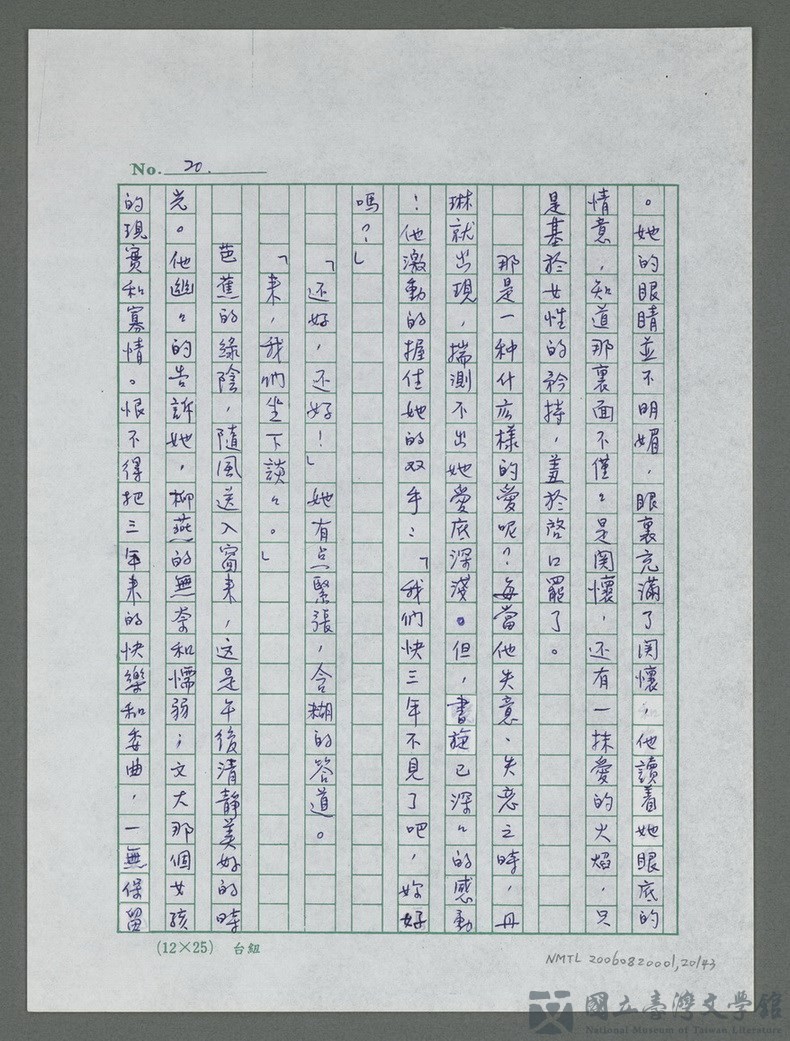 No. 20.
。她的眼睛並不明媚，眼裏充滿了関懷，他讀着她眼底的
情意，知道那裏面不僅々是関懷，还有一抹愛的火焰，只
是基於女性的矜持，羞於啓口罷了。
那是一种什么樣的愛呢？每當他失意、失恋之時，丹
琳就出現，揣測不出她愛底深淺。但，書旋已深々的感動
！他激動的握住她的双手：「我們快三年不見了吧，妳好
嗎？」
「还好，还好！」她有点緊張，含糊的答道。
「来，我們坐下談々。」
芭蕉的綠陰，隨風送入窗来，这是午後清靜美好的時
光。他幽々的告訴她，柳燕的無奈和懦弱；文大那個女孩
的現實和寡情。恨不得把三年来的快樂和委曲，一無保留
(12×25) 台紐
NMTL 20060820001,20/43
國立臺灣文學館
National Museum of Taiwan Literature